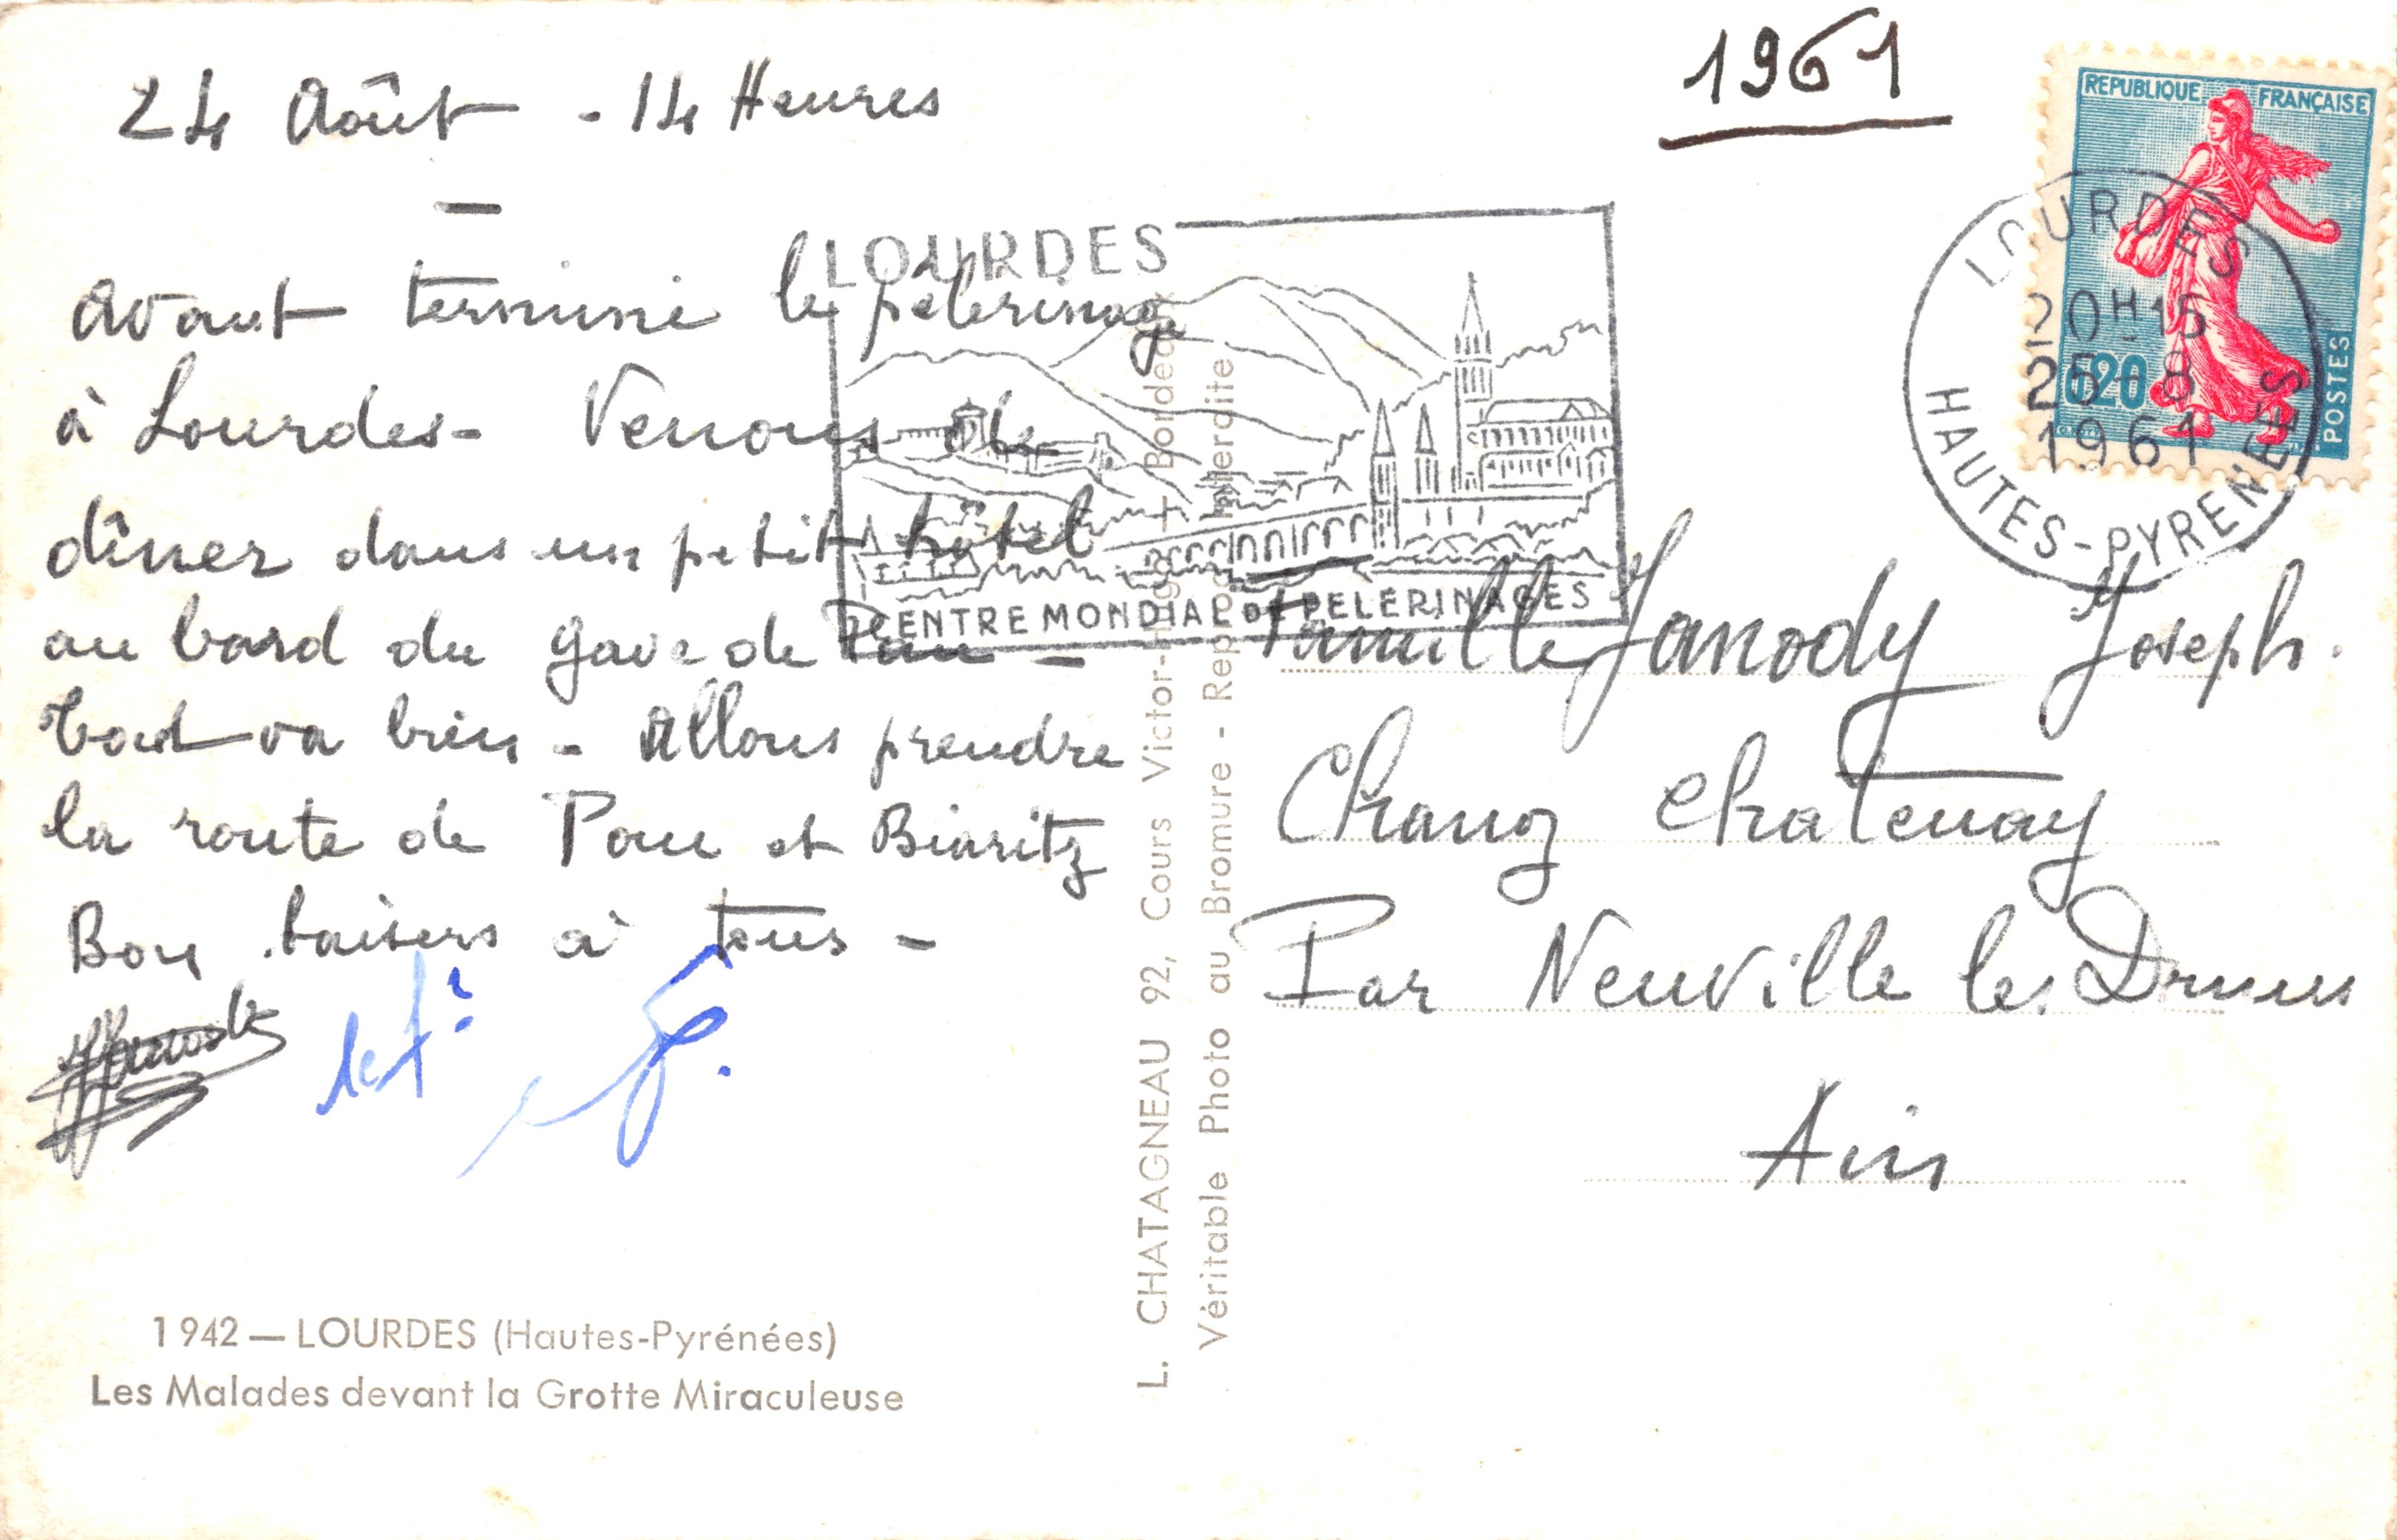 24 Août - 14 Heures
1961
REPUBLIQUE FRANÇAISE
0,20
POSTES
LOURDES
20H15
25-8
1961
HAUTES-PYRENEES
LOURDES
CENTRE MONDIAL DE PELERINAGES
Avant terminé le pélerinage
à Lourdes - Venons de
dîner dans un petit hôtel
au bord du gave de Pau -
tout va bien - Allons prendre
la route de Pau et Biaritz
Bon baisers à tous -
Famille Janody Joseph.
Chanoz Chatenay
Par Neuville les Dames
Ain
1942 — LOURDES (Hautes-Pyrénées)
Les Malades devant la Grotte Miraculeuse
L. CHATAGNEAU 92, Cours Victor-Hugo - Bordeaux
Véritable Photo au Bromure - Reproduction Interdite